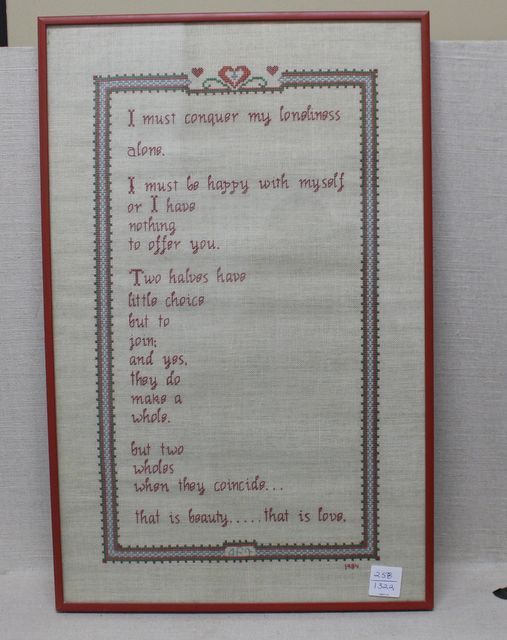 I must conquer my loneliness
alone.
I must be happy with myself
or I have
nothing
to offer you.
Two halves have
little choice
but to
join;
and yes,
they do
make a
whole.
but two
wholes
when they coincide...
that is beauty.....that is love.
1984
258
1322